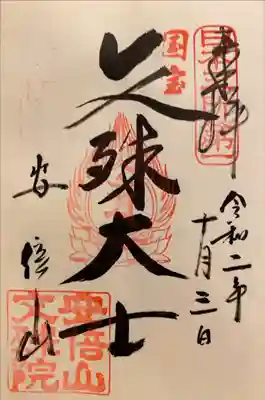 奉拝
令和二年
十月三日
国宝
文殊大士
安倍山
安倍山
文殊院